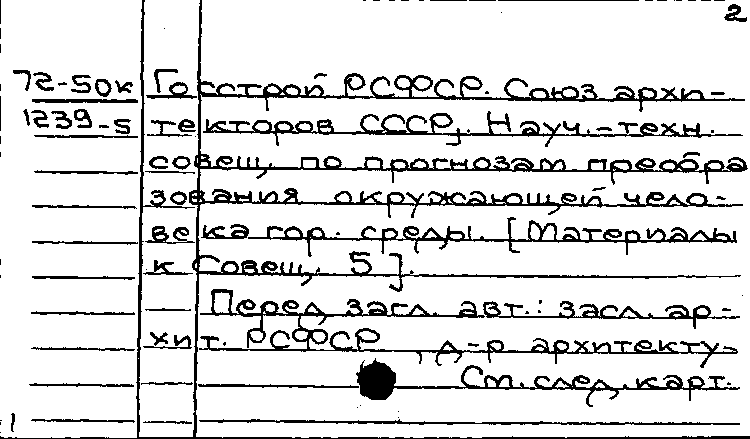 2
72-50к Госстрой РСФСР. Союз архи-
1239-5 текторов СССР, Науч.-техн.
совещ. по прогнозам преобра
зования окружающей чело-
века гор. среды. [Материалы
к Совещ. 5].
Перед загл. авт.: засл. ар-
хит. РСФСР, д-р архитекту-
См. след. карт.